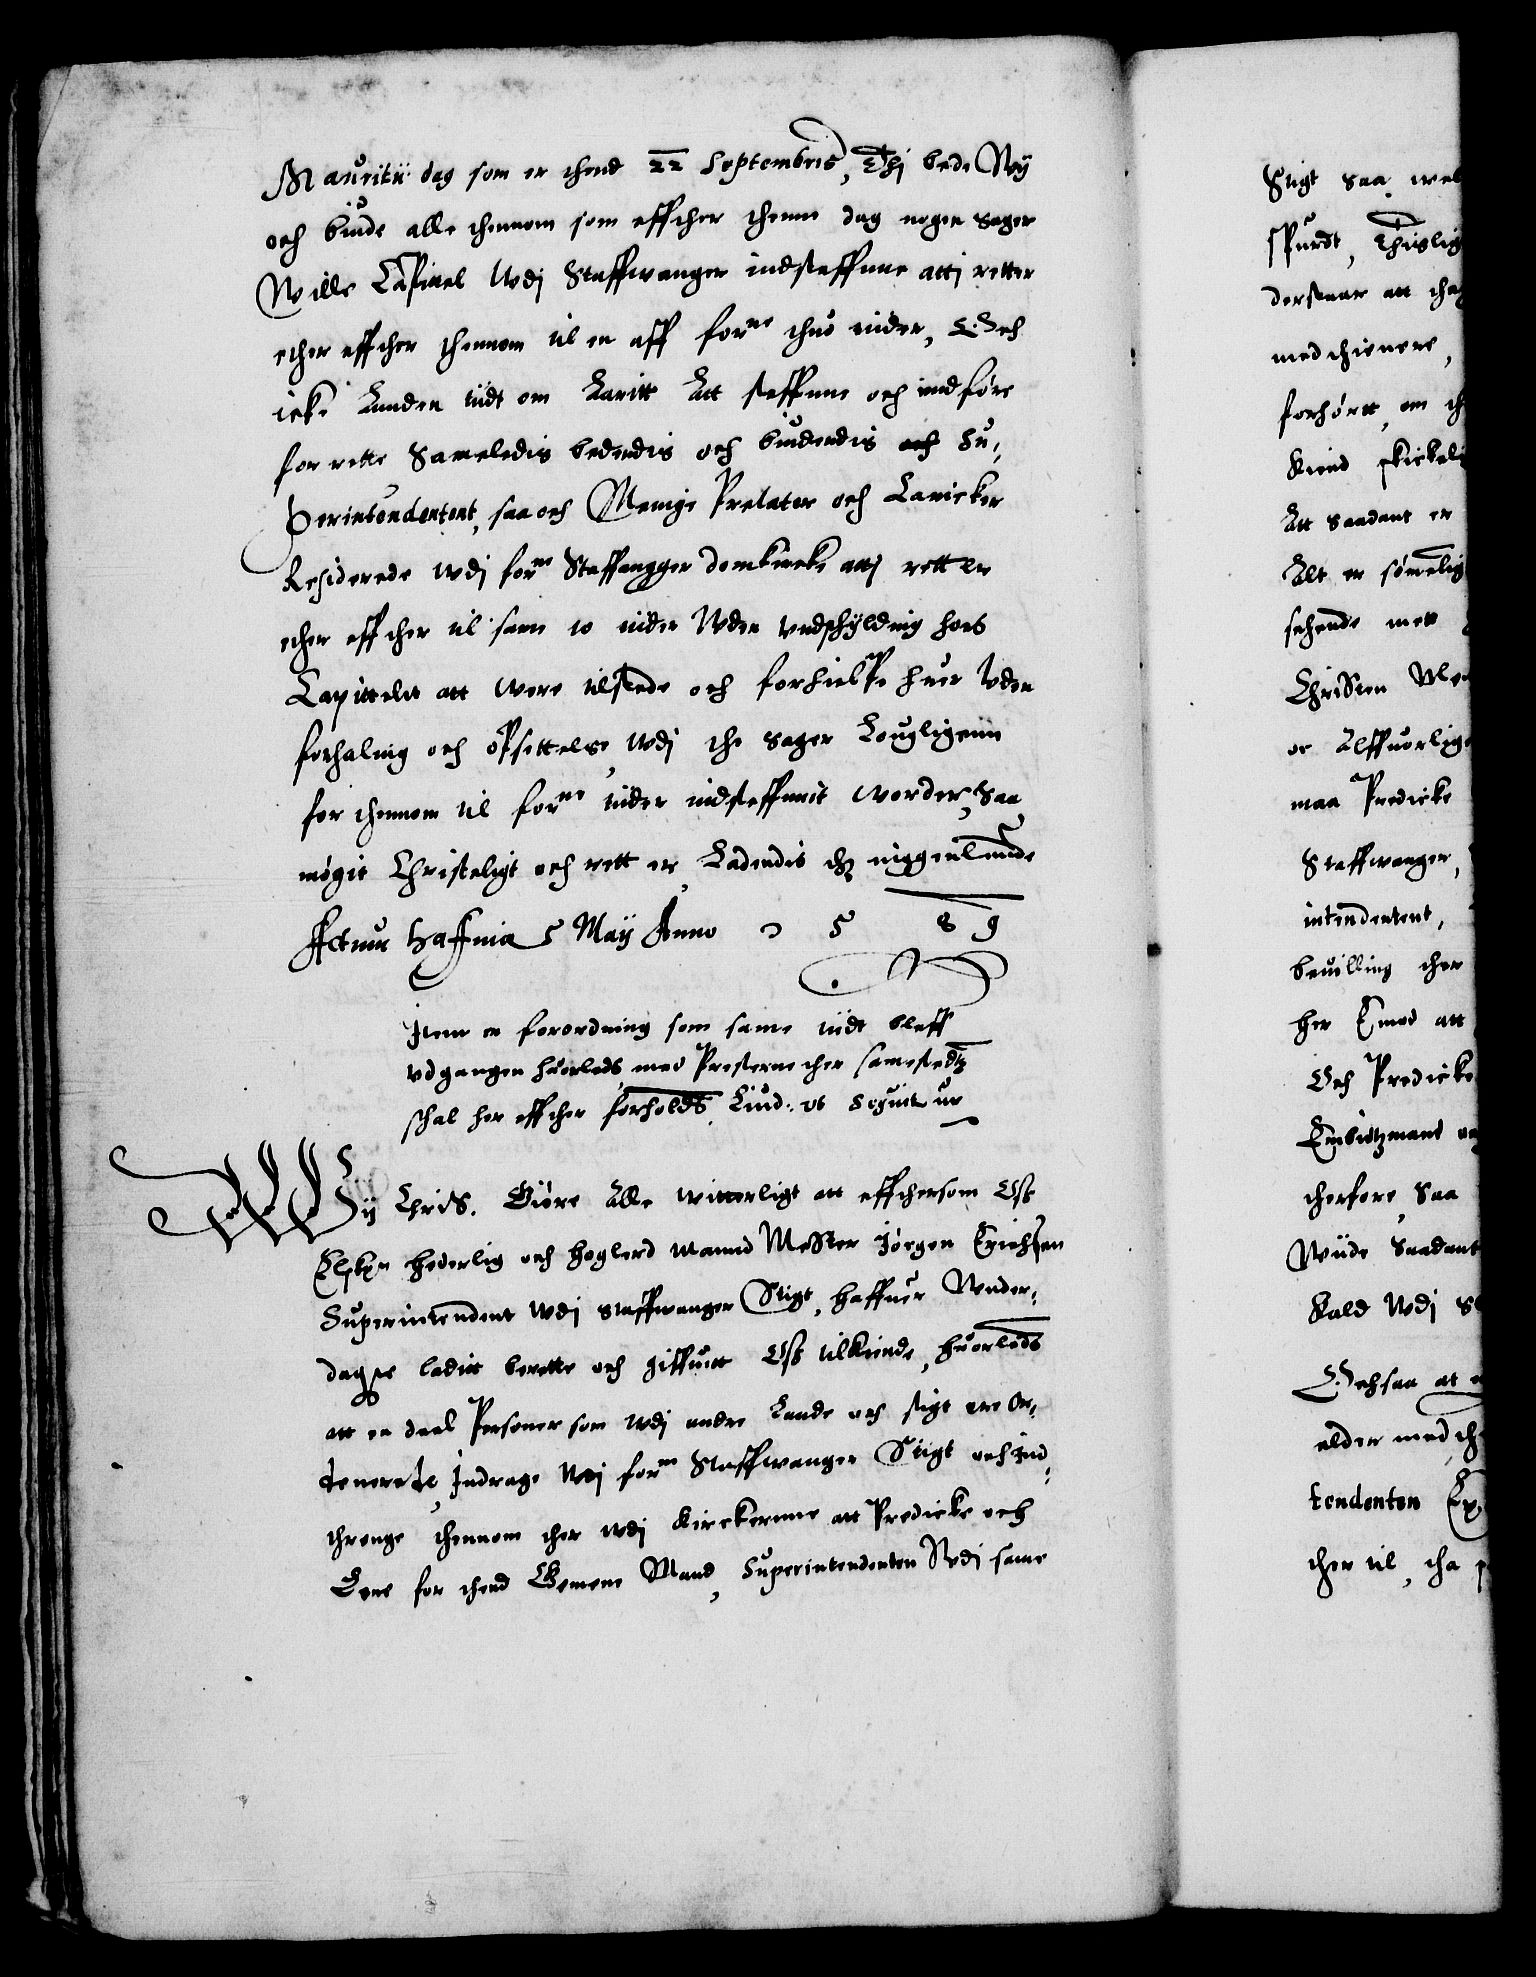 Mauritii dag som er thend 22 Septembris, Thj bede Wÿ
och biude alle thennom som effther thenne dag nogen sager
Wille Capitel Wdj Staffwanger indsteffnne attj retter
ether effther thennom til en aff forne thuo tider, Och
icke Anden tidt om Aaritt Att steffnne och indføre
for rette Sameledis bedendis och biudendis och Su,
perintendentent, saa och Menige Prelater och Canicker
Residerede wdj forne Staffangger domkircke attj rett er
ether effther til same to tider Wden undschÿldnig hoes
Capittelit att were tilstede och forhielpe huer Vden
forhalnig och opsettelse, Wdj the sager Lougligenn
for thennom til forne tider indsteffnnit worder, Saa
møgit Christeligt och rett er, Ladendis thz inggenlunde
Actum Haffnia 5 Maÿ Anno 1 5 8 9
Item en forordning som same tidt bleff
vdgangen huorleds med Presterne ther samestedtz
schal her effther forholds Liud: vt Seguitur
Wÿ ChriS. Giøre Alle witterligt att efftersom Oss
Elskn Hederlig och Høglerd Mannd Mester Jørgen Erichsen
Superintendent Wdj Staffwanger Stigt, Haffuer Wnder,
dagste laditt berette och giffuitt Oss tilkiende, Huorleds
att en deel Personer som Wdj andre Lande och stigt ere Or,
tenerete, Indrage Wdj forne Staffwanger Stigt och Ind,
threnge thennom ther wdj Kirckernne att Predicke och
Lere for thend Gemene Mand, Superintendenten Wdj same
Stigt Saa wel
spurdt, Thislig
derstaar att tha
med thienere,
forhørtt, om th
Kiend skickeli
Att saadant er
Alt er sømelig
sehende mett
Christen
or Alffuorlig
maa Predicke
Staffwanger,
intendentent,
beuilling ther
her Emod att
Och Predicke
Embidtzmand
therfore, Saa
Wiide Saadant
Kald Wdj S
Och saa at
alder med, th
tendenten
ther til, tha